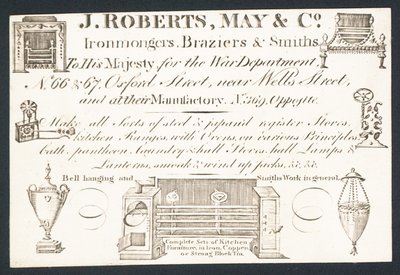 J. ROBERTS, MAY & Co.
Ironmongers, Braziers & Smiths
To His Majesty for the War Department,
No. 66 & 67, Oxford Street, near Wells Street,
and at their Manufactory, No. 369, Opposite.
Make all Sorts of steel & japan'd register Stoves,
kitchen Ranges with Ovens, on various Principles,
bath, pantheon, Laundry & hall Stoves, hall Lamps &
Lanterns, smoak & wind up jacks, &c. &c.
Bell hanging and Smiths Work in general.
Complete Sets of Kitchen
Furniture, in Iron, Copper,
or Strong Block Tin.